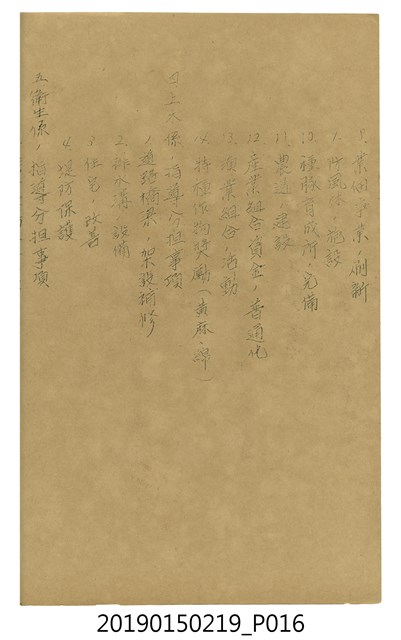 8.業佃事業ノ刷新
9.防風林ノ施設
10.種豚育成所ノ完備
11.農道ノ建設
12.産業組合資金ノ普通化
13.漁業組合ノ活動
14.特種作物奬勵(黄麻、綿)
四、土木係ノ指導分担事項
1.道路橋梁ノ架設補修
2.排水溝ノ設備
3.住宅ノ改善
4.堤防保護
五、衛生係ノ指導分担事項
20190150219_P016